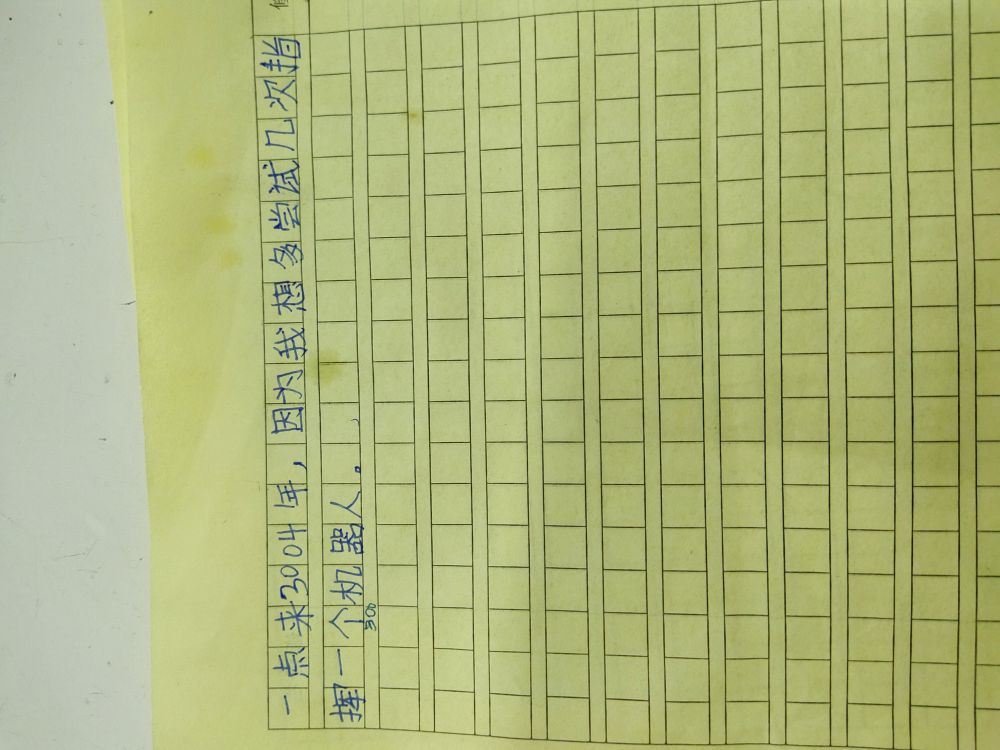 一点来3004年，因为我想多尝试几次指
挥一个机器人。
300